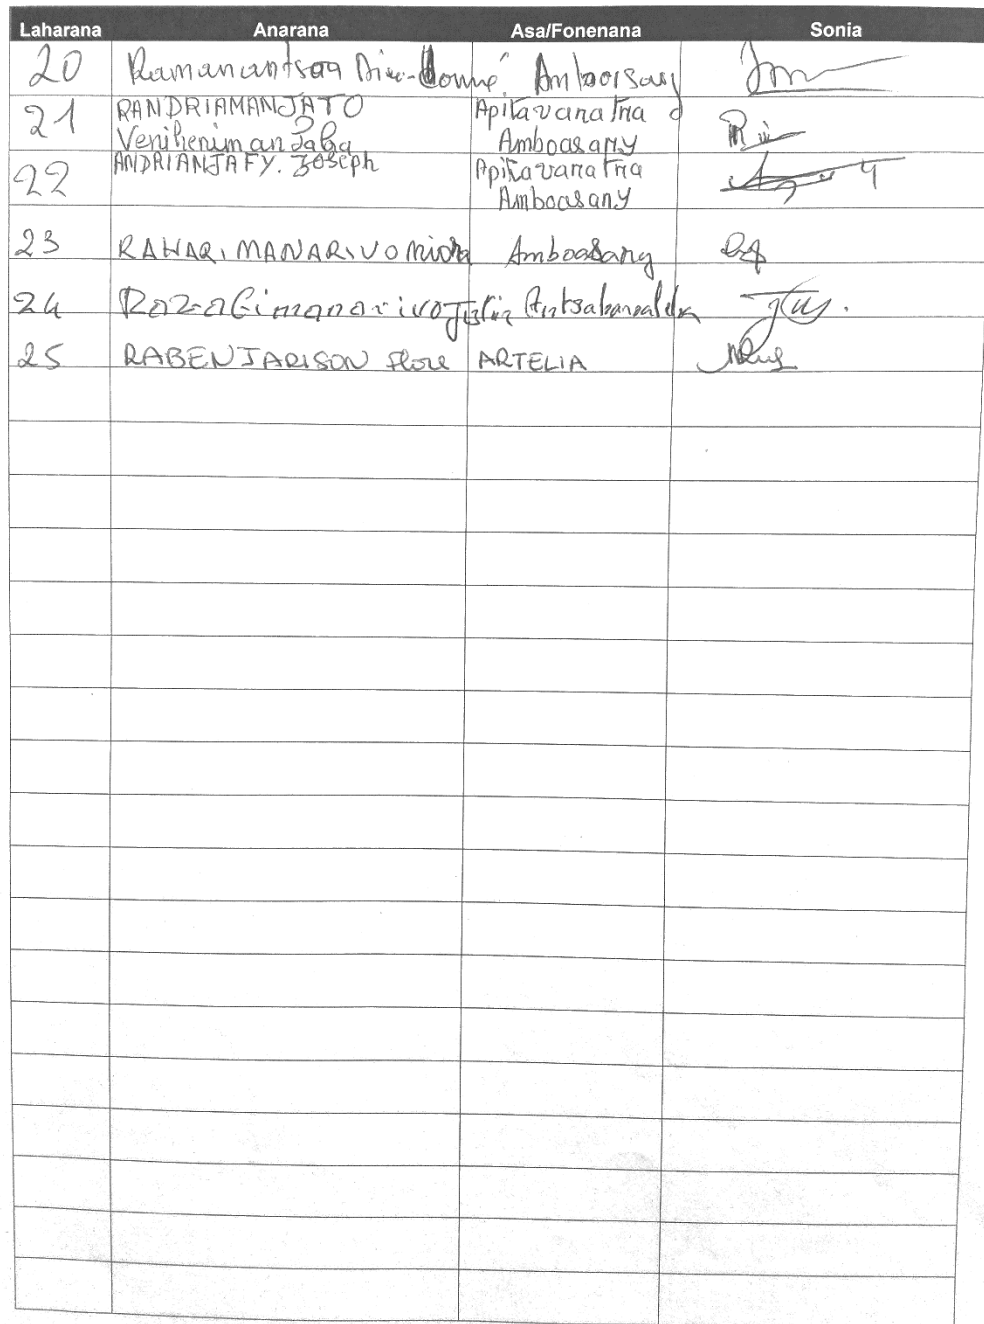 Laharana Anarana Asa/Fonenana Sonia
20 Ramanantsoa Dieu-donné Amboasary
21 RANDRIAMANJATO Apitavanatria
Veniheriman Amboasary
22 ANDRIANJAFY. Joseph Apitavanatria
Amboasany
23 RAHARIMANARIVO Amboasany
24 Razafimanarivo Justin
25 RABENJARISON Flore ARTELIA